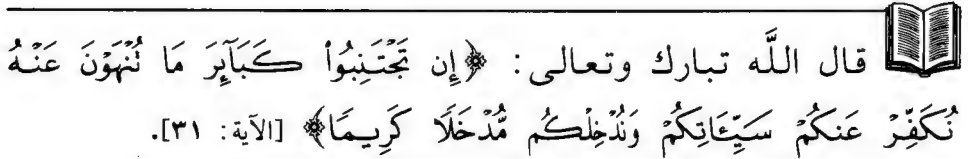 قال اللَّه تبارك وتعالى: ﴿إِن تَجْتَنِبُوا۟ كَبَآئِرَ مَا تُنْهَوْنَ عَنْهُ
نُكَفِّرْ عَنكُمْ سَيِّـَٔاتِكُمْ وَنُدْخِلْكُم مُّدْخَلًا كَرِيمًا﴾ [الآية: ٣١].